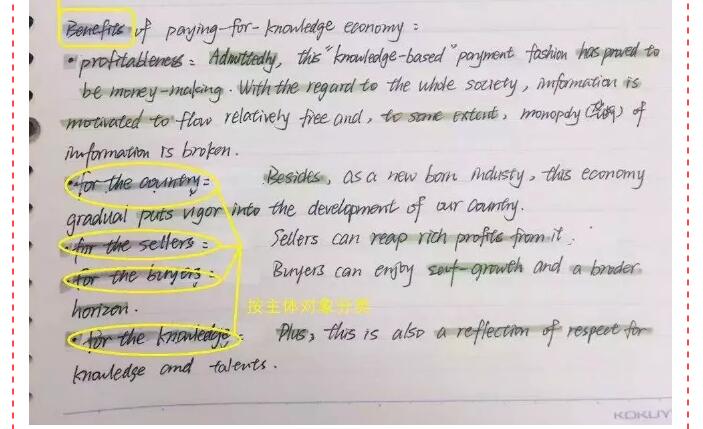 Benefits of paying-for-knowledge economy :
• profitableness : Admittedly, this "knowledge-based" payment fashion has proved to
be money-making. With the regard to the whole society, information is
motivated to flow relatively free and, to some extent, monopoly (垄断) of
information is broken.
• for the country : Besides, as a new born industy, this economy
gradual puts vigor into the development of our country.
• for the sellers : Sellers can reap rich profits from it ;
• for the buyers : Buyers can enjoy self-growth and a broder
horizon.
按主体对象分类
• for the knowledge : Plus, this is also a reflection of respect for
knowledge and talents.
KOKUY